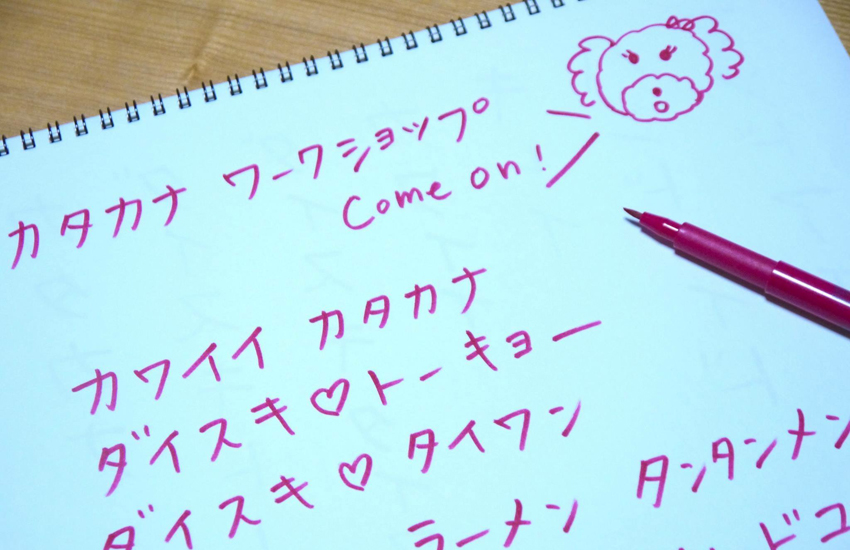 カタカナ ワークショップ
Come on!
カワイイ カタカナ
ダイスキ♡トーキョー
ダイスキ♡タイワン
ラーメン タンタンメン
ドコ